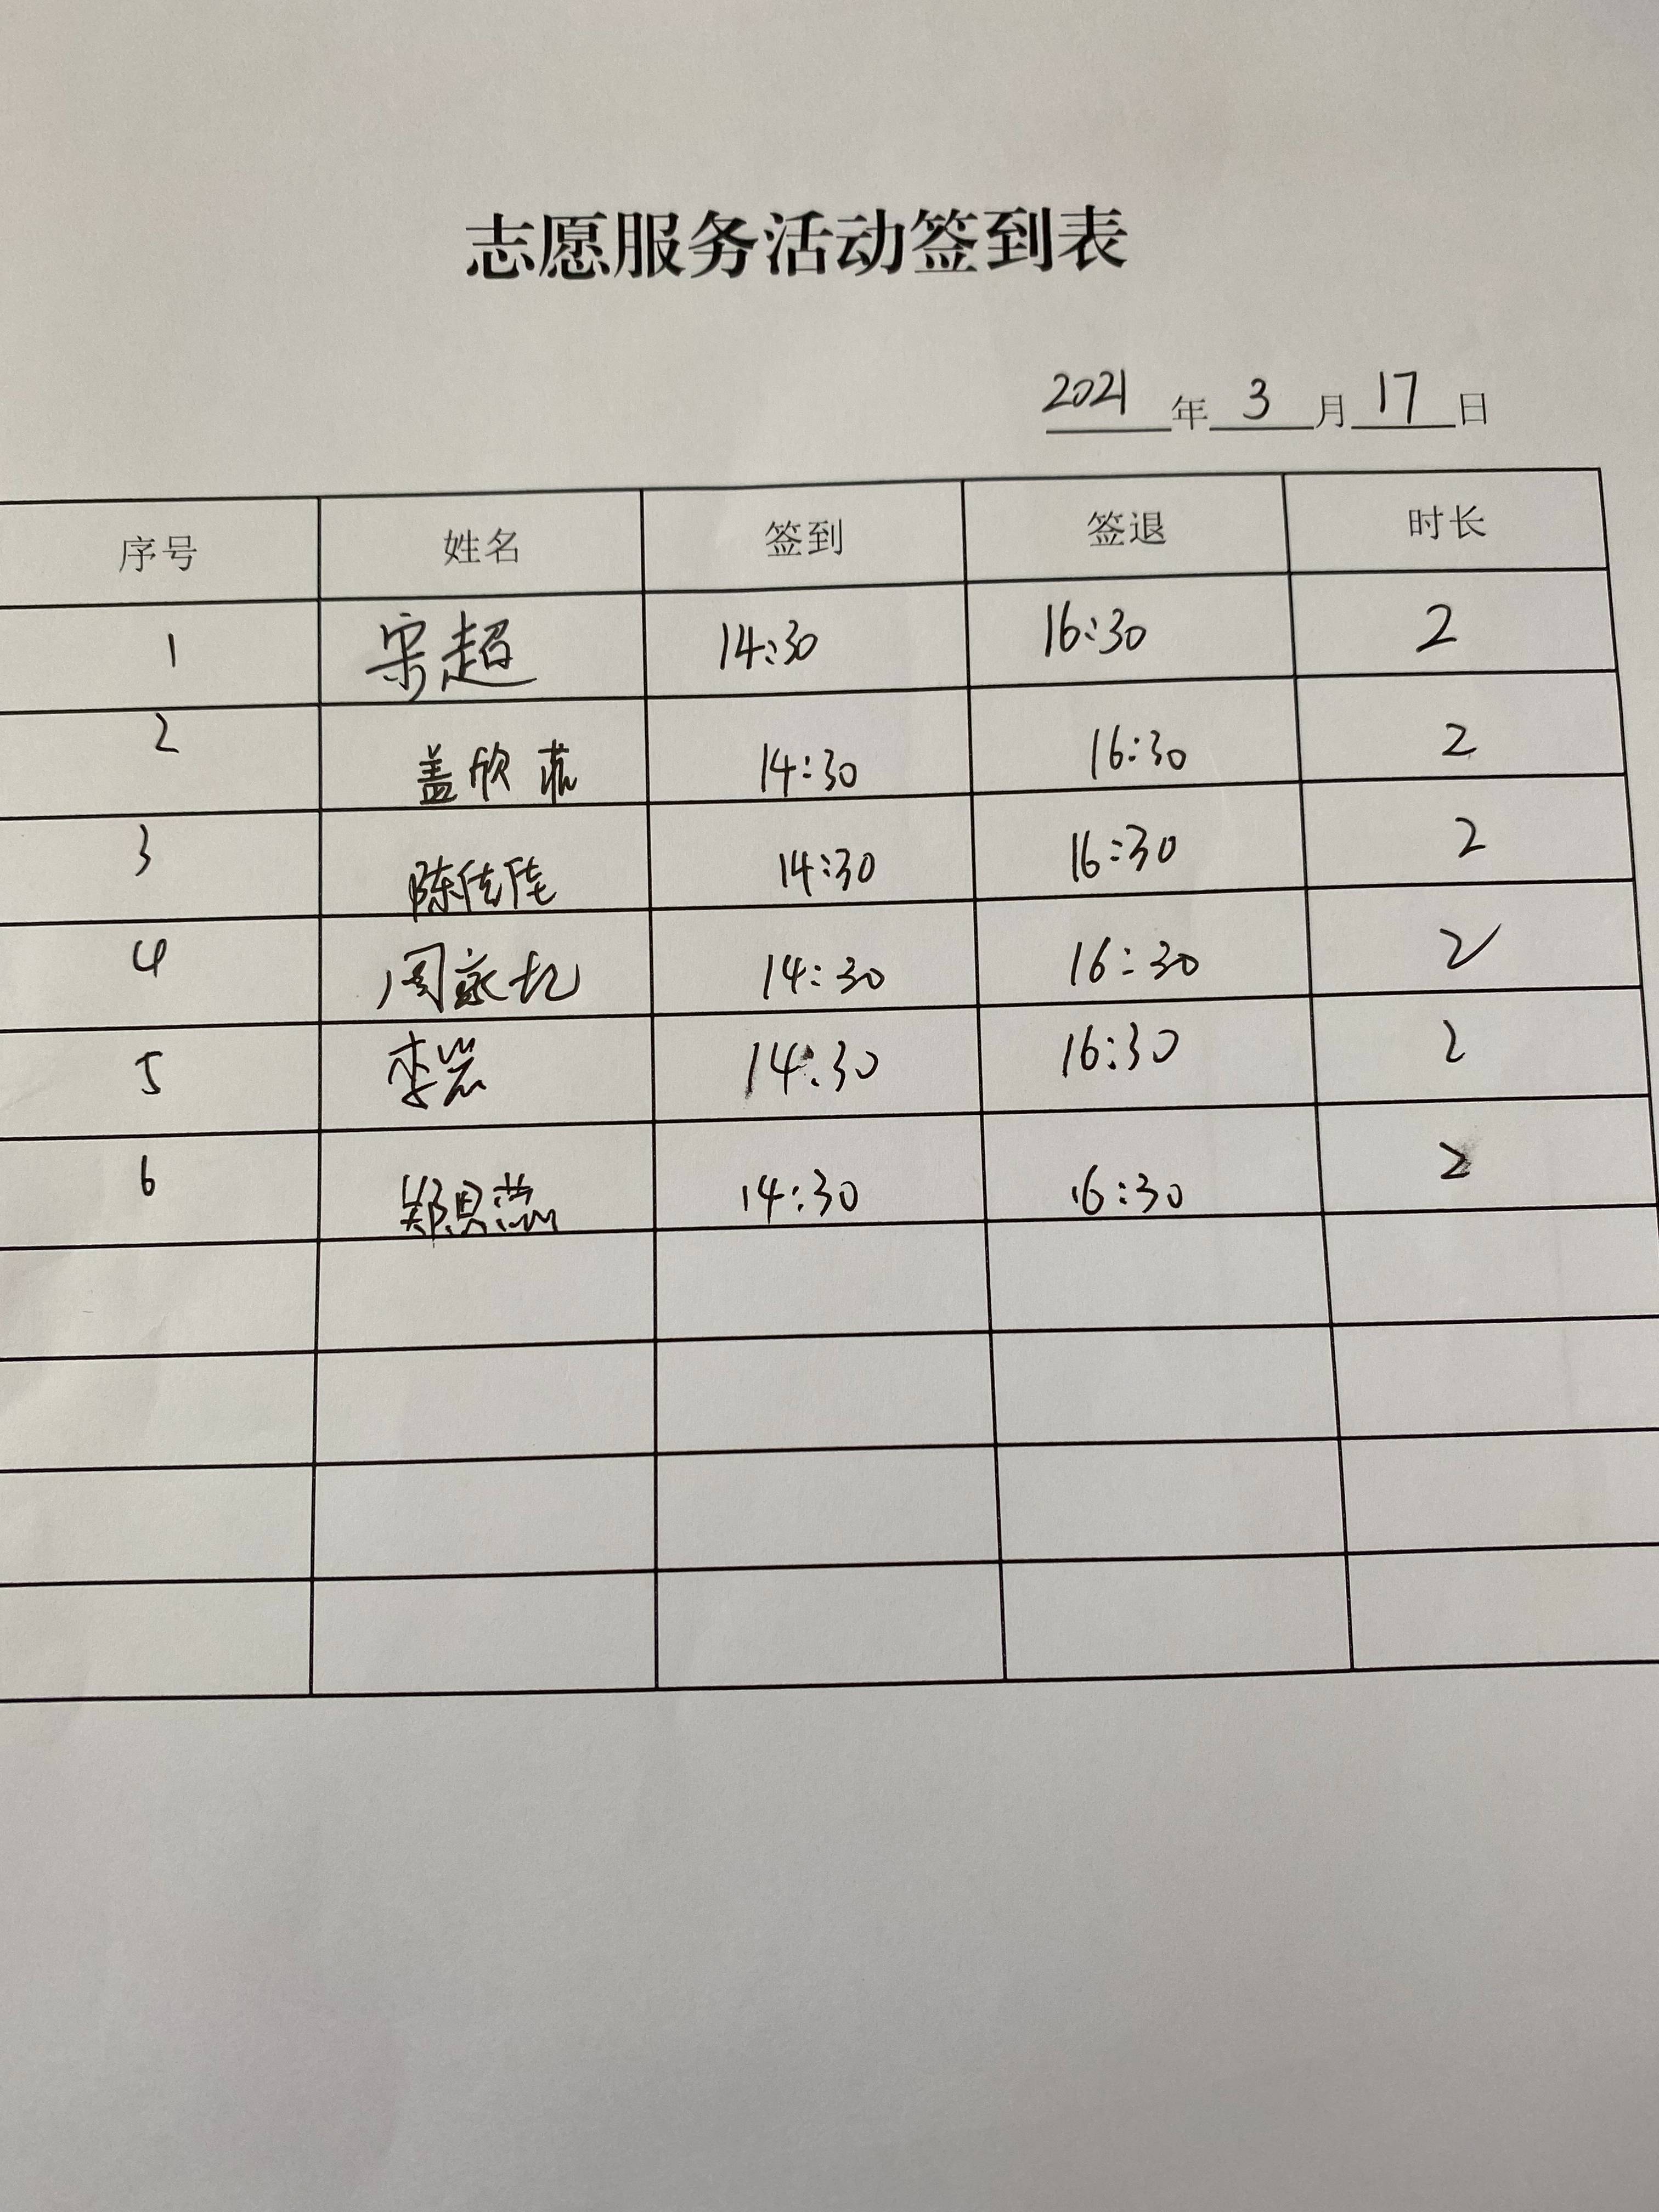 志愿服务活动签到表
2021 年 3 月 17 日
序号 姓名 签到 签退 时长
1 宋超 14:30 16:30 2
2 盖欣 14:30 16:30 2
3 陈佳佳 14:30 16:30 2
4 周永 14:30 16:30 2
5 李岩 14:30 16:30 2
6 郑思蕊 14:30 16:30 2